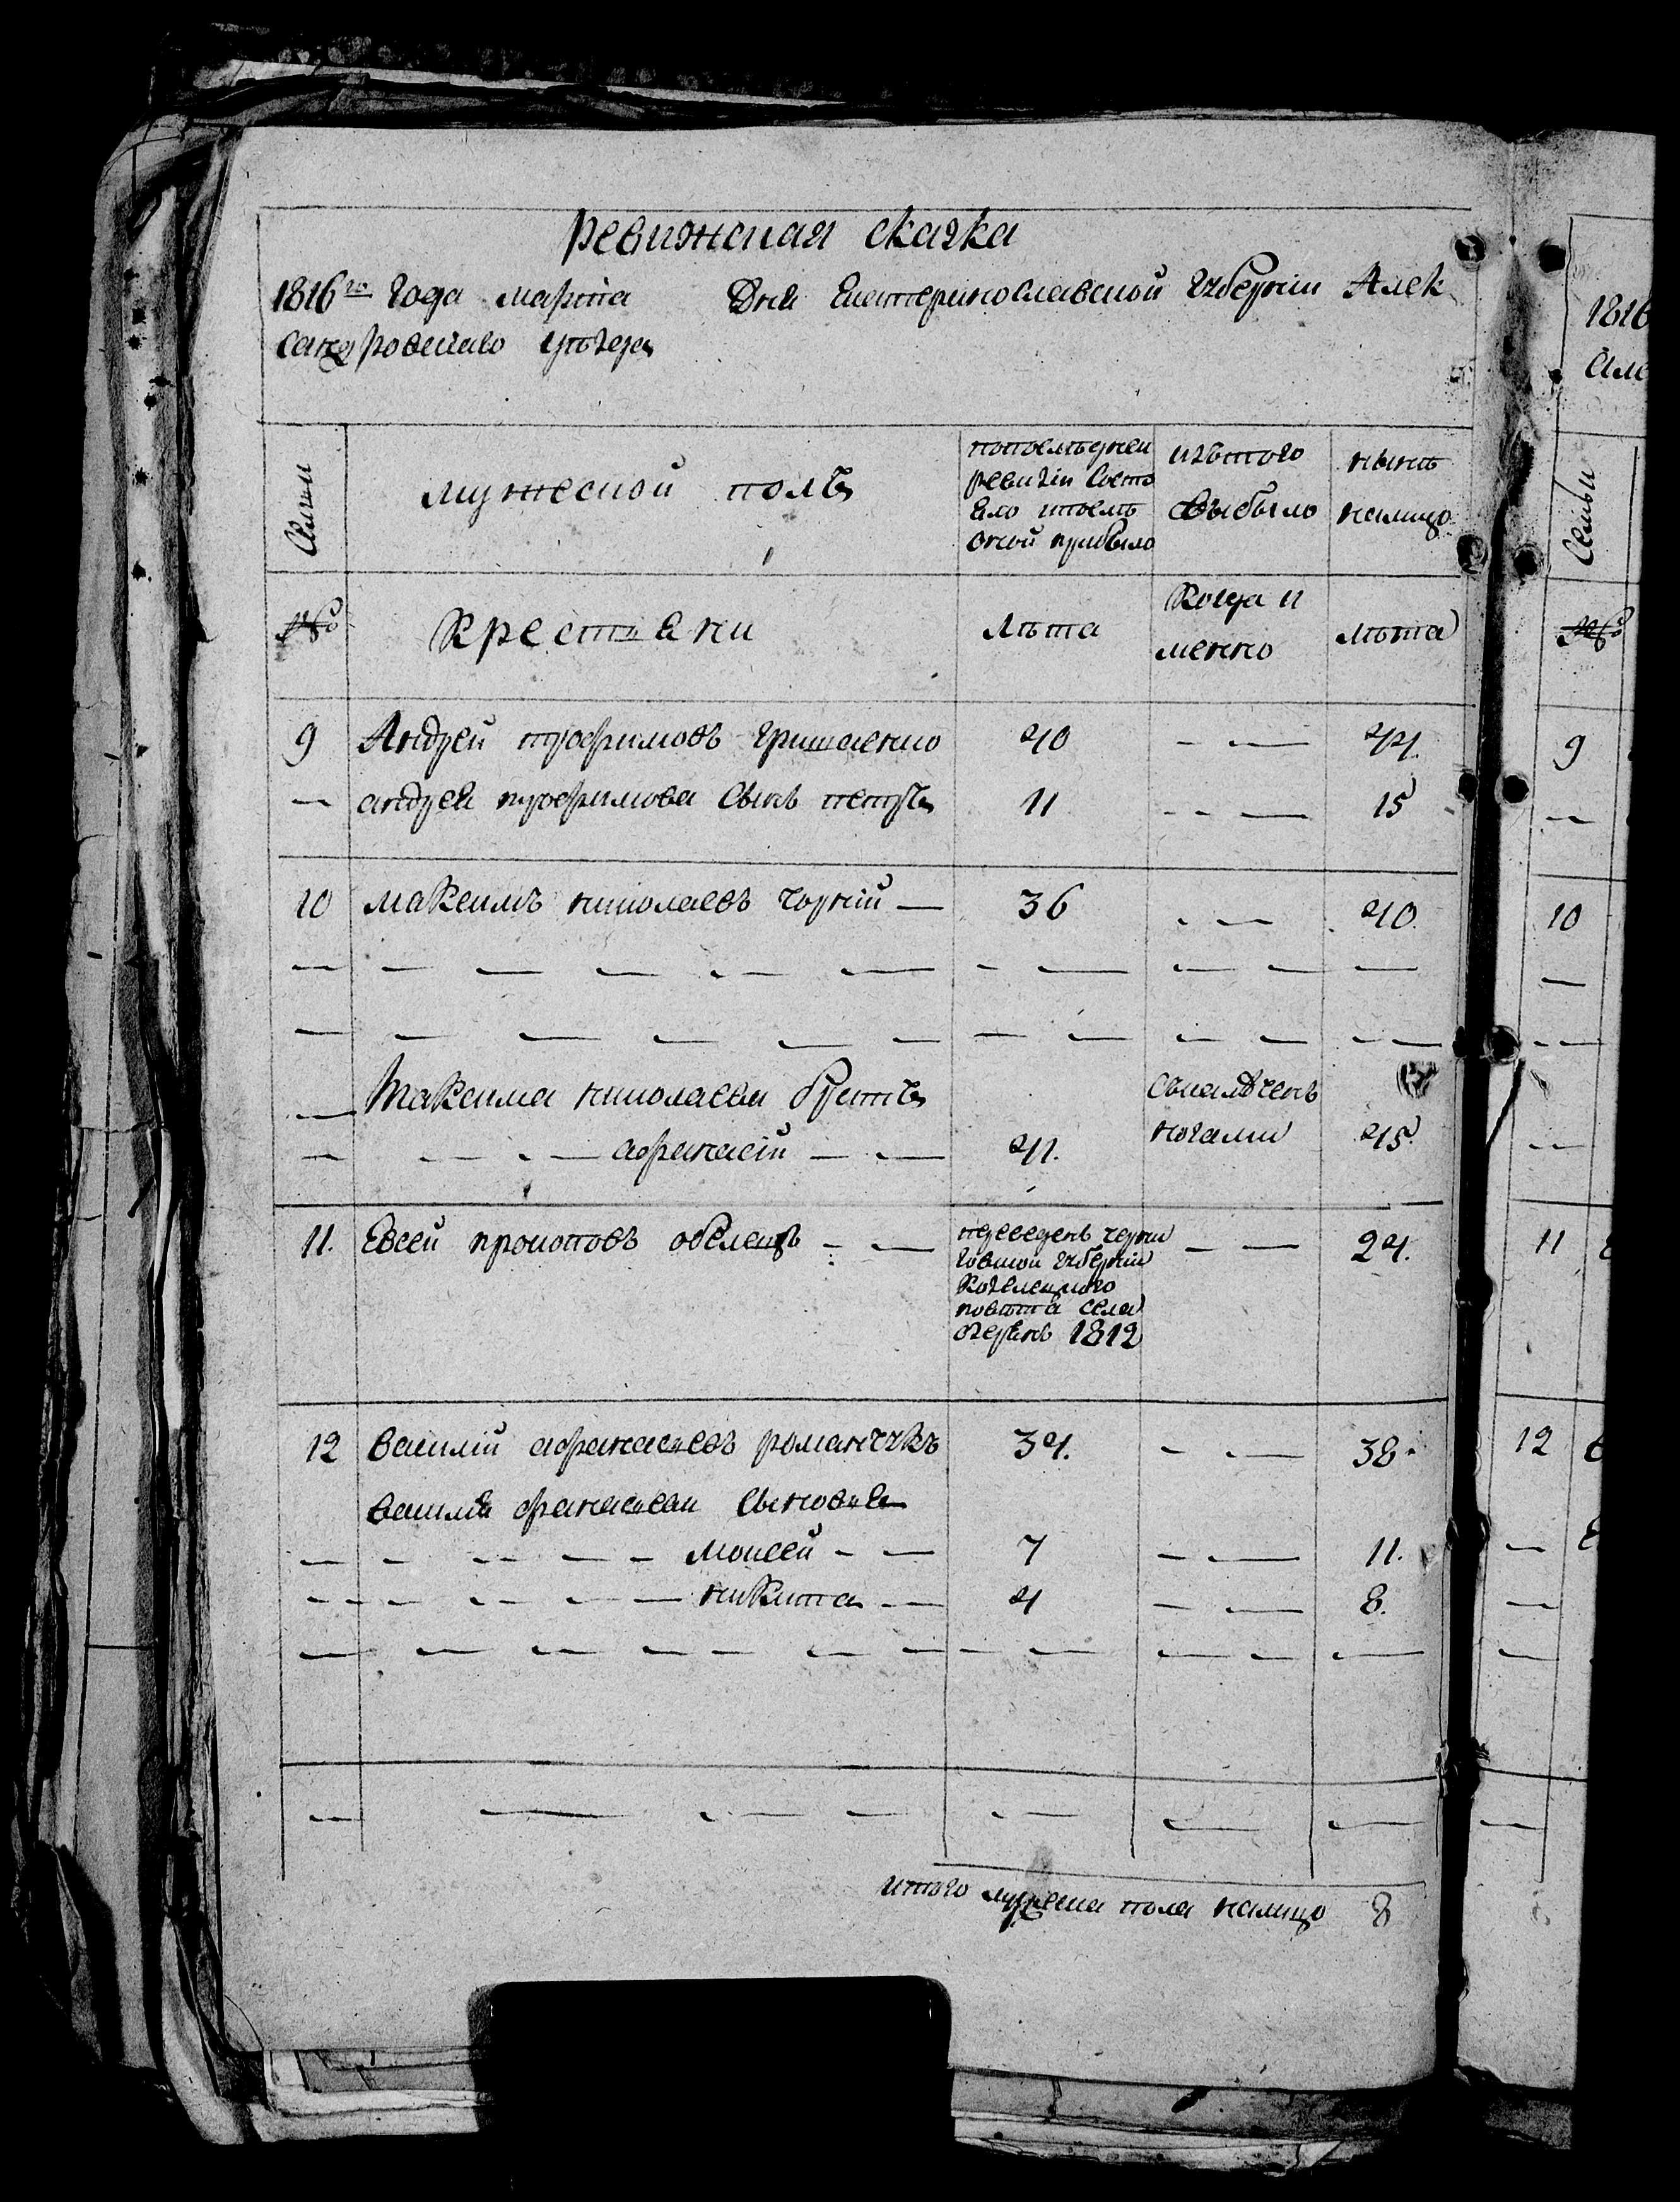 ревижская сказка
1816го года марта дня екатеринославской губернии Алек
сандровскаго уѣзда
Семьи
мужеской полъ
попоследнеи
ревизіи состо
яло ипослѣ
оной прибыло
изътого
выбыло
нынѣ
налицо
№
Крестьяни
лѣта
Когда и
менно
лѣта
9 Андрей трофимовъ гришаенко 40 — — 44.
— андрея трофимова сынъ петръ 11 — — 15
10 максимъ николаевъ чорній — 36 — — 40.
Максима николаева братъ
— — — афанасій — — 41. съкалѣченъ ногами 45.
11. Евсей прокоповъ обеленцъ — —
переведенъ черни
говской губерніи
Козелецкого
повѣта села
озерянъ 1812
— — 24.
12 василій афанасьевъ романчукъ 34. — — 38.
василя афанасьева сыновья
— — — — моисей — — 7 — — 11.
— — — — никита — — 4 — — 8.
итого мужеска пола налицо 8
1816
Але
Семьи
№
9
10
11
12